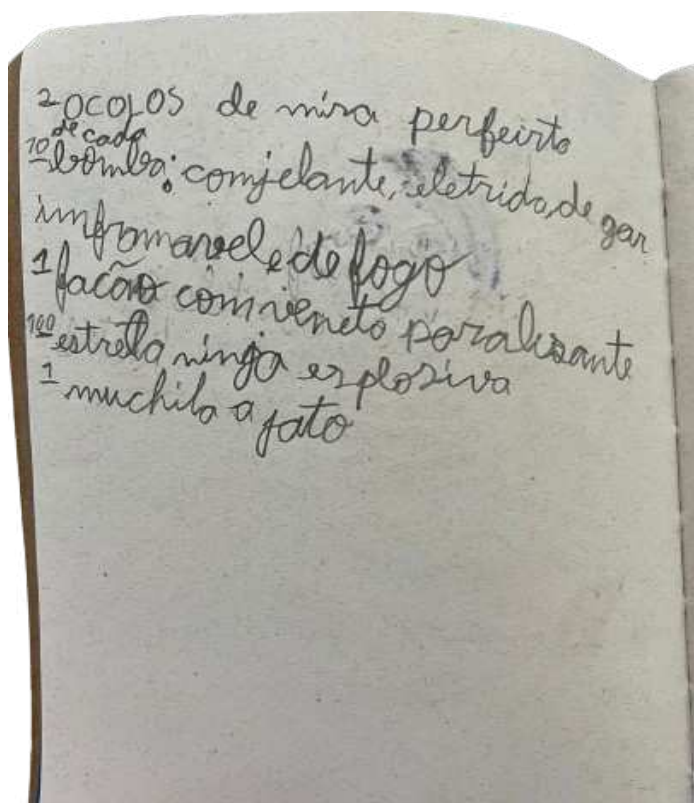 2 OCOLOS de mira perfeirto
10 de cada bomba: comjelante, eletrida, de gar
imframavel e de fogo
1 facão com veneto paralisante
100 estrela ninja explosiva
1 muchila a jato